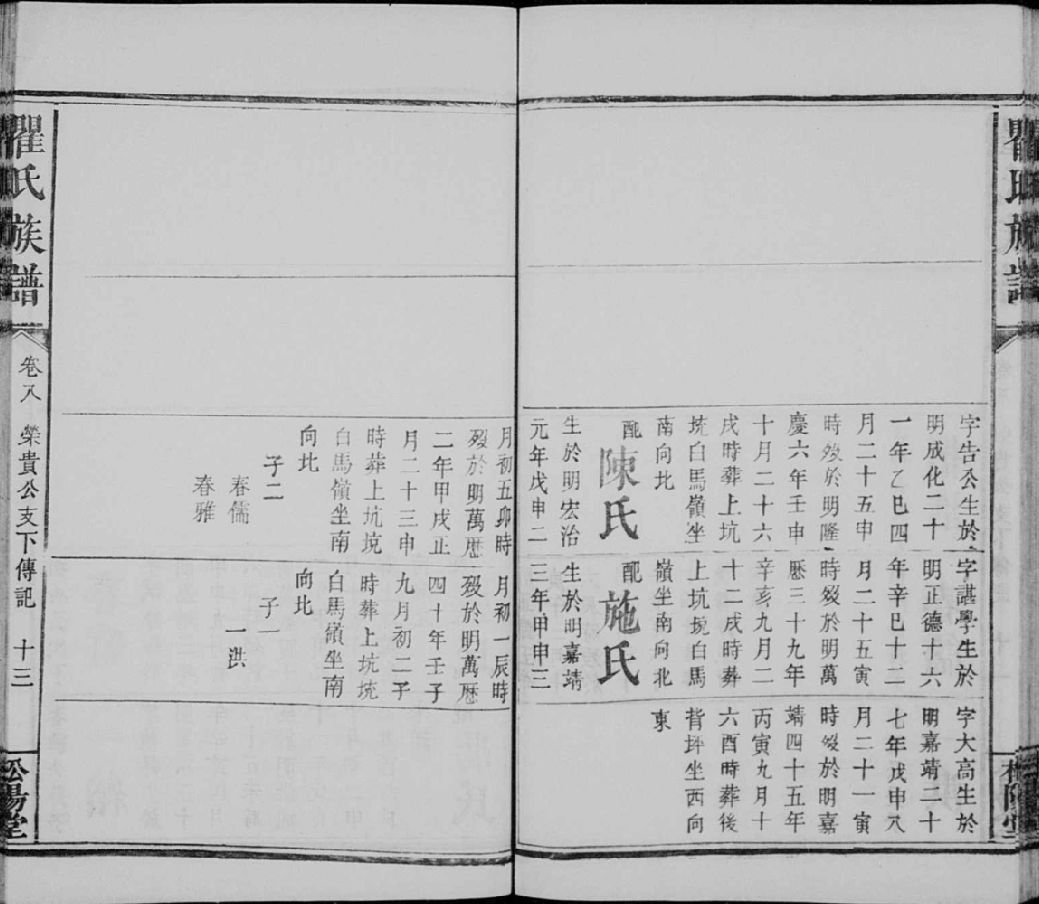 瞿氏族譜
字告公生於
明成化二十
一年乙巳四
月二十五申
時殁於明隆
慶六年壬申
十月二十六
戌時葬上坑
垸白馬嶺坐
南向北
配陳氏
生於明宏治
元年戊申二
字諶學生於
明正德十六
年辛巳十二
月二十五寅
時殁於明萬
厯三十九年
辛亥九月二
十二戌時葬
上坑垸白馬
嶺坐南向北
配施氏
生於明嘉靖
三年甲申三
字大高生於
明嘉靖二十
七年戊申八
月二十一寅
時殁於明嘉
靖四十五年
丙寅九月十
六酉時葬後
背坪坐西向
東
松陽堂
月初五卯時
殁於明萬厯
二年甲戌正
月二十三申
時葬上坑垸
白馬嶺坐南
向北
子二
春儒
春雅
月初一辰時
殁於明萬厯
四十年壬子
九月初二子
時葬上坑垸
白馬嶺坐南
向北
子一
一洪
瞿氏族譜
卷八 榮貴公支下傳記 十三
松陽堂